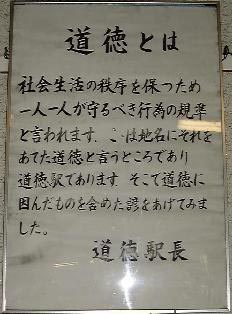 道徳とは
社会生活の秩序を保つため
一人一人が守るべき行為の規準
と言われます。ここは地名にそれを
あてた道徳と言うところであり
道徳駅であります。そこで道徳に
因んだものを含めた諺をあげてみま
した。
道徳駅長